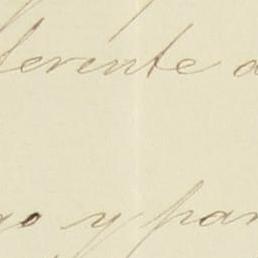 ferente a
go y par